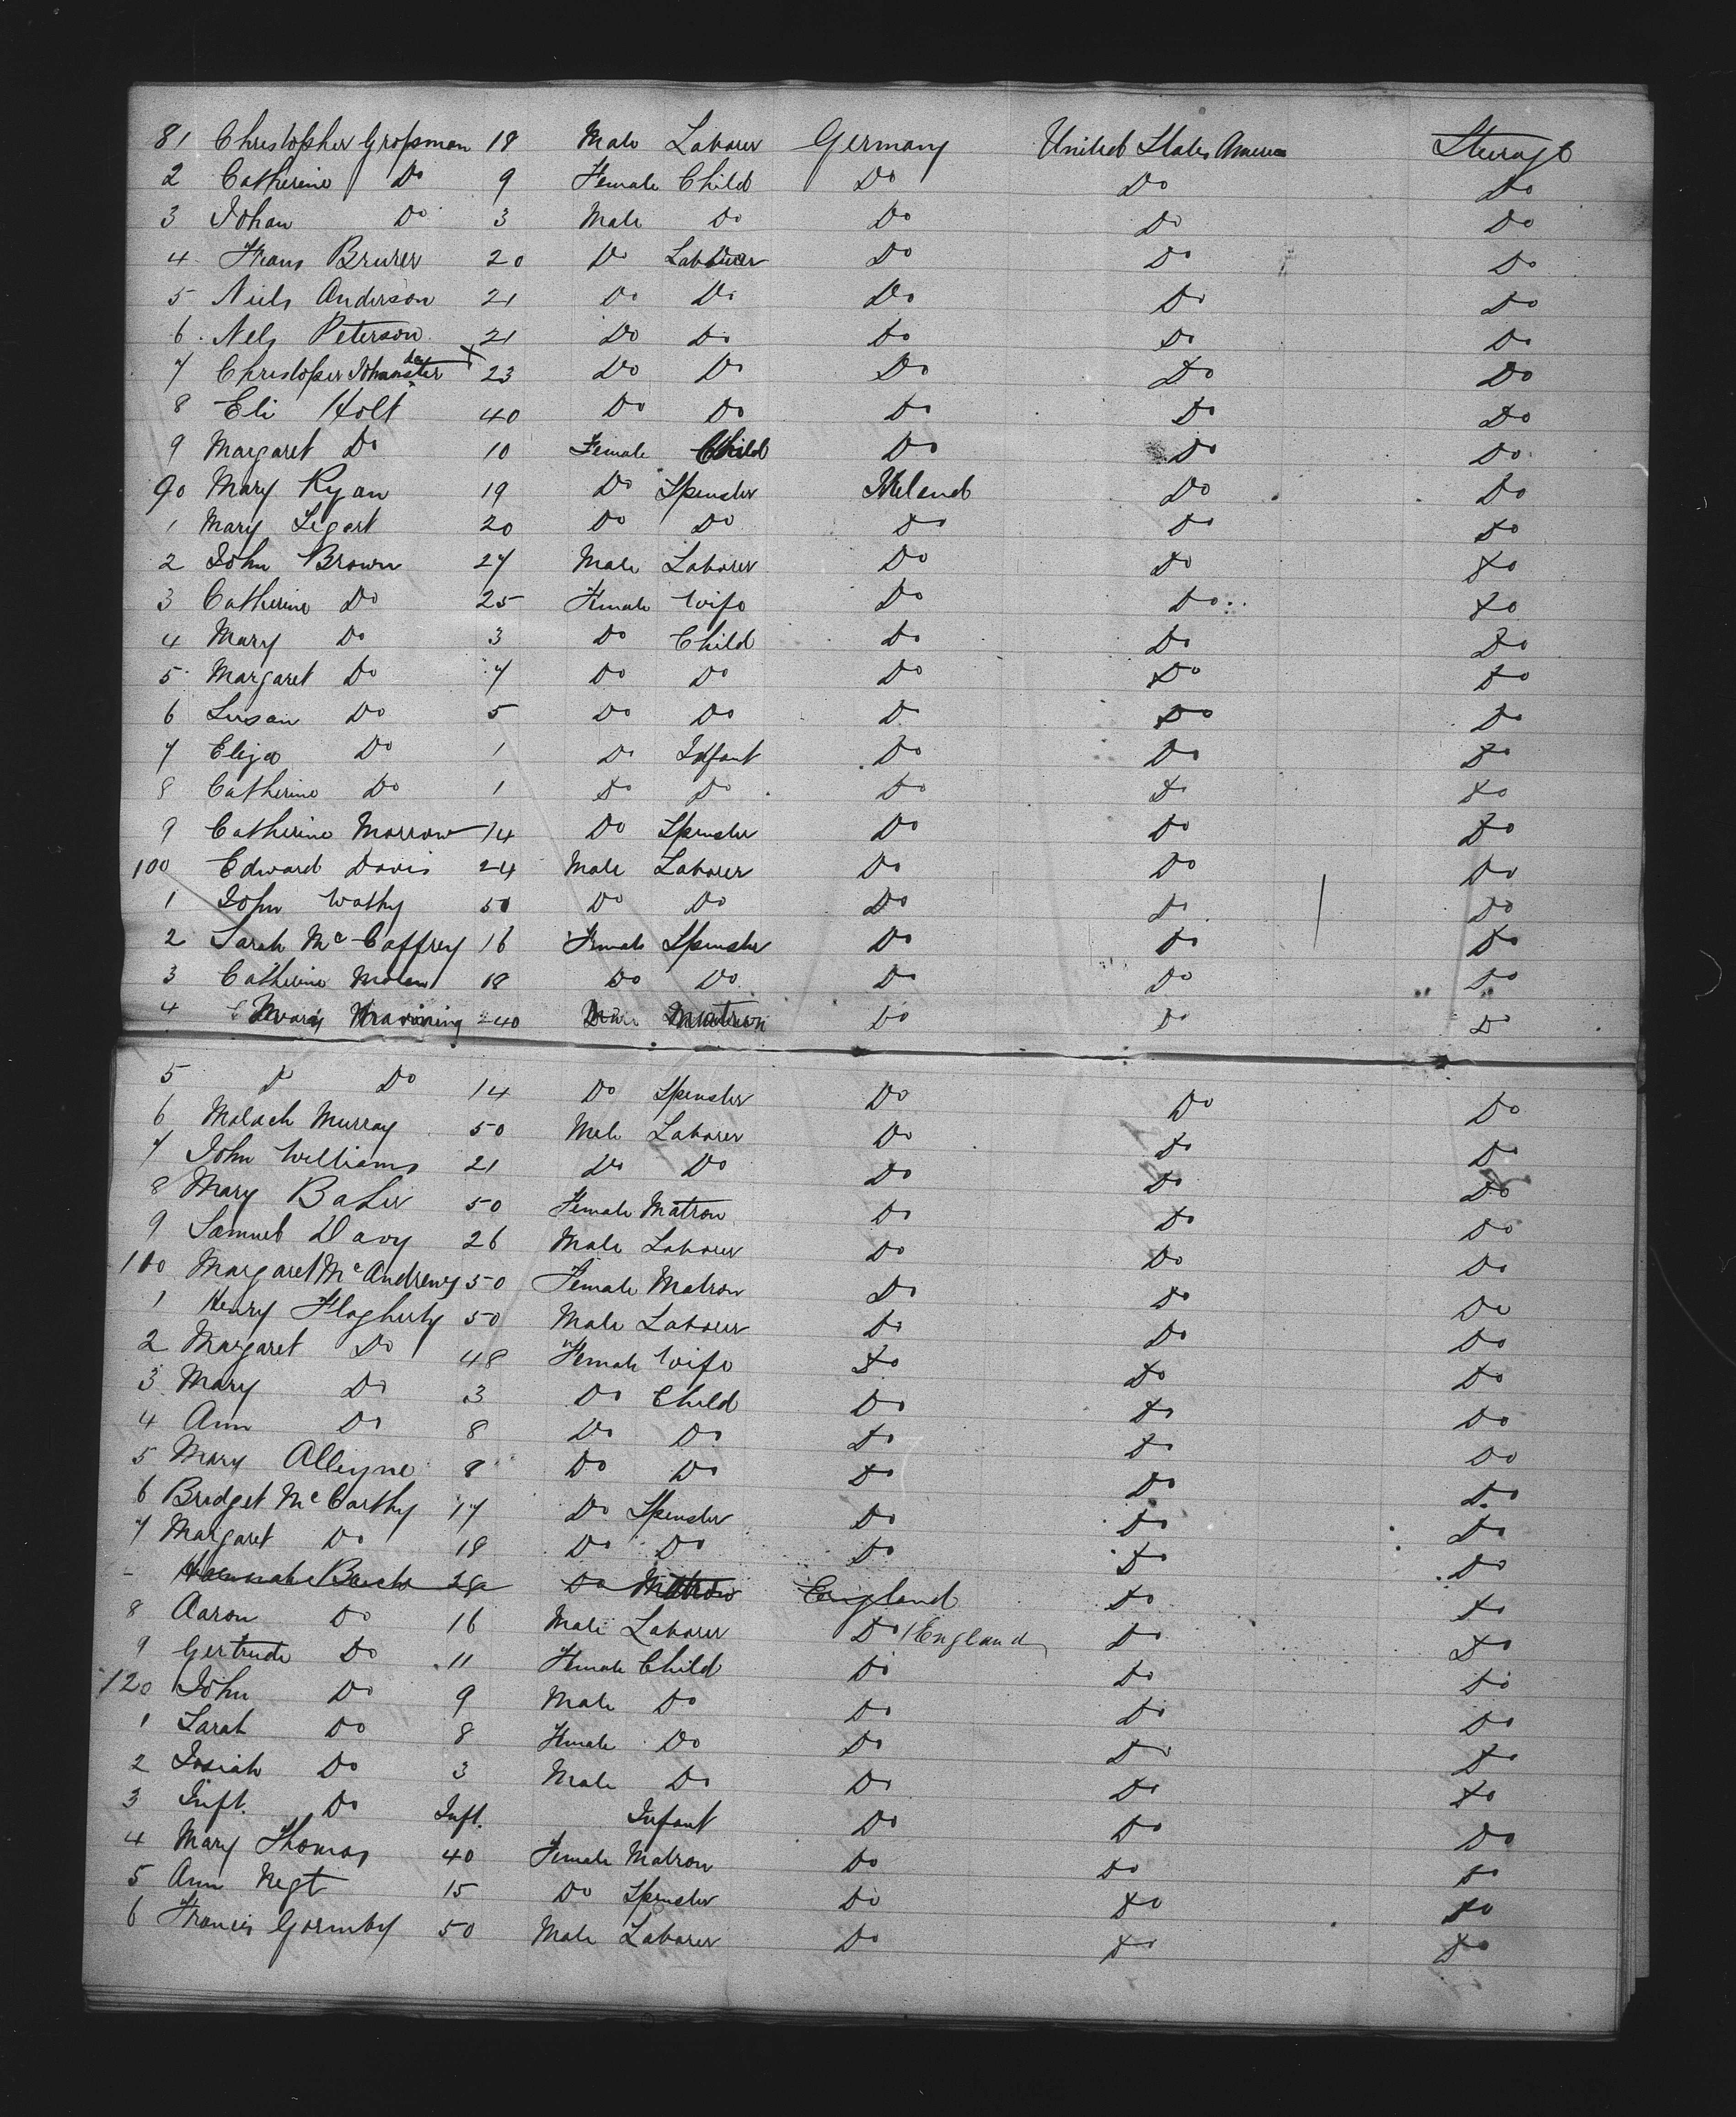 81 Christopher Grossman 18 Male Laborer Germany United States America Steerage
2 Catherine Do 9 Female Child Do Do Do
3 Johan Do 3 Male Do Do Do Do
4 Frans Brurer 20 Do Laborer Do Do Do
5 Niels Anderson 21 Do Do Do Do Do
6 Nels Peterson 21 Do Do Do Do Do
7 Christoper 23 Do Do Do Do Do
8 Eli Holt 40 Do Do Do Do Do
9 Margaret Do 10 Female Child Do Do Do
90 Mary Ryan 19 Do Spinster Ireland Do Do
1 Mary Legart 20 Do Do Do Do Do
2 John Brown 27 Male Laborer Do Do Do
3 Catherine Do 25 Female Wife Do Do Do
4 Mary Do 3 Do Child Do Do Do
5 Margaret Do 7 Do Do Do Do Do
6 Susan Do 5 Do Do Do Do Do
7 Eliza Do 1 Do Infant Do Do Do
8 Catherine Do 1 Do Do Do Do Do
9 Catherine Morrow 14 Do Spinster Do Do Do
100 Edward Davis 24 Male Laborer Do Do Do
1 John Wathy 50 Do Do Do Do Do
2 Sarah McCaffrey 16 Female Spinster Do Do Do
3 Catherine Molan 18 Do Do Do Do Do
4 Mary Manning 40 Do Matron Do Do Do
5 Do Do 14 Do Spinster Do Do Do
6 Malach Murray 50 Male Laborer Do Do Do
7 John Williams 21 Do Do Do Do Do
8 Mary Baker 50 Female Matron Do Do Do
9 Samuel Davy 26 Male Laborer Do Do Do
110 Margaret McAndrews 50 Female Matron Do Do Do
1 Henry Flagherty 50 Male Laborer Do Do Do
2 Margaret Do 48 Female Wife Do Do Do
3 Mary Do 3 Do Child Do Do Do
4 Ann Do 8 Do Do Do Do Do
5 Mary Alleyne 8 Do Do Do Do Do
6 Bridget McCarthy 17 Do Spinster Do Do Do
7 Margaret Do 18 Do Do Do Do Do
- Hannah 28 Do Matron England Do Do
8 Aaron Do 16 Male Laborer Do England Do Do
9 Gertrude Do 11 Female Child Do Do Do
120 John Do 9 Male Do Do Do Do
1 Sarah Do 8 Female Do Do Do Do
2 Josiah Do 3 Male Do Do Do Do
3 Inft. Do Inft. Infant Do Do Do
4 Mary Thomas 40 Female Matron Do Do Do
5 Ann Negt 15 Do Spinster Do Do Do
6 Francis Gormby 50 Male Laborer Do Do Do